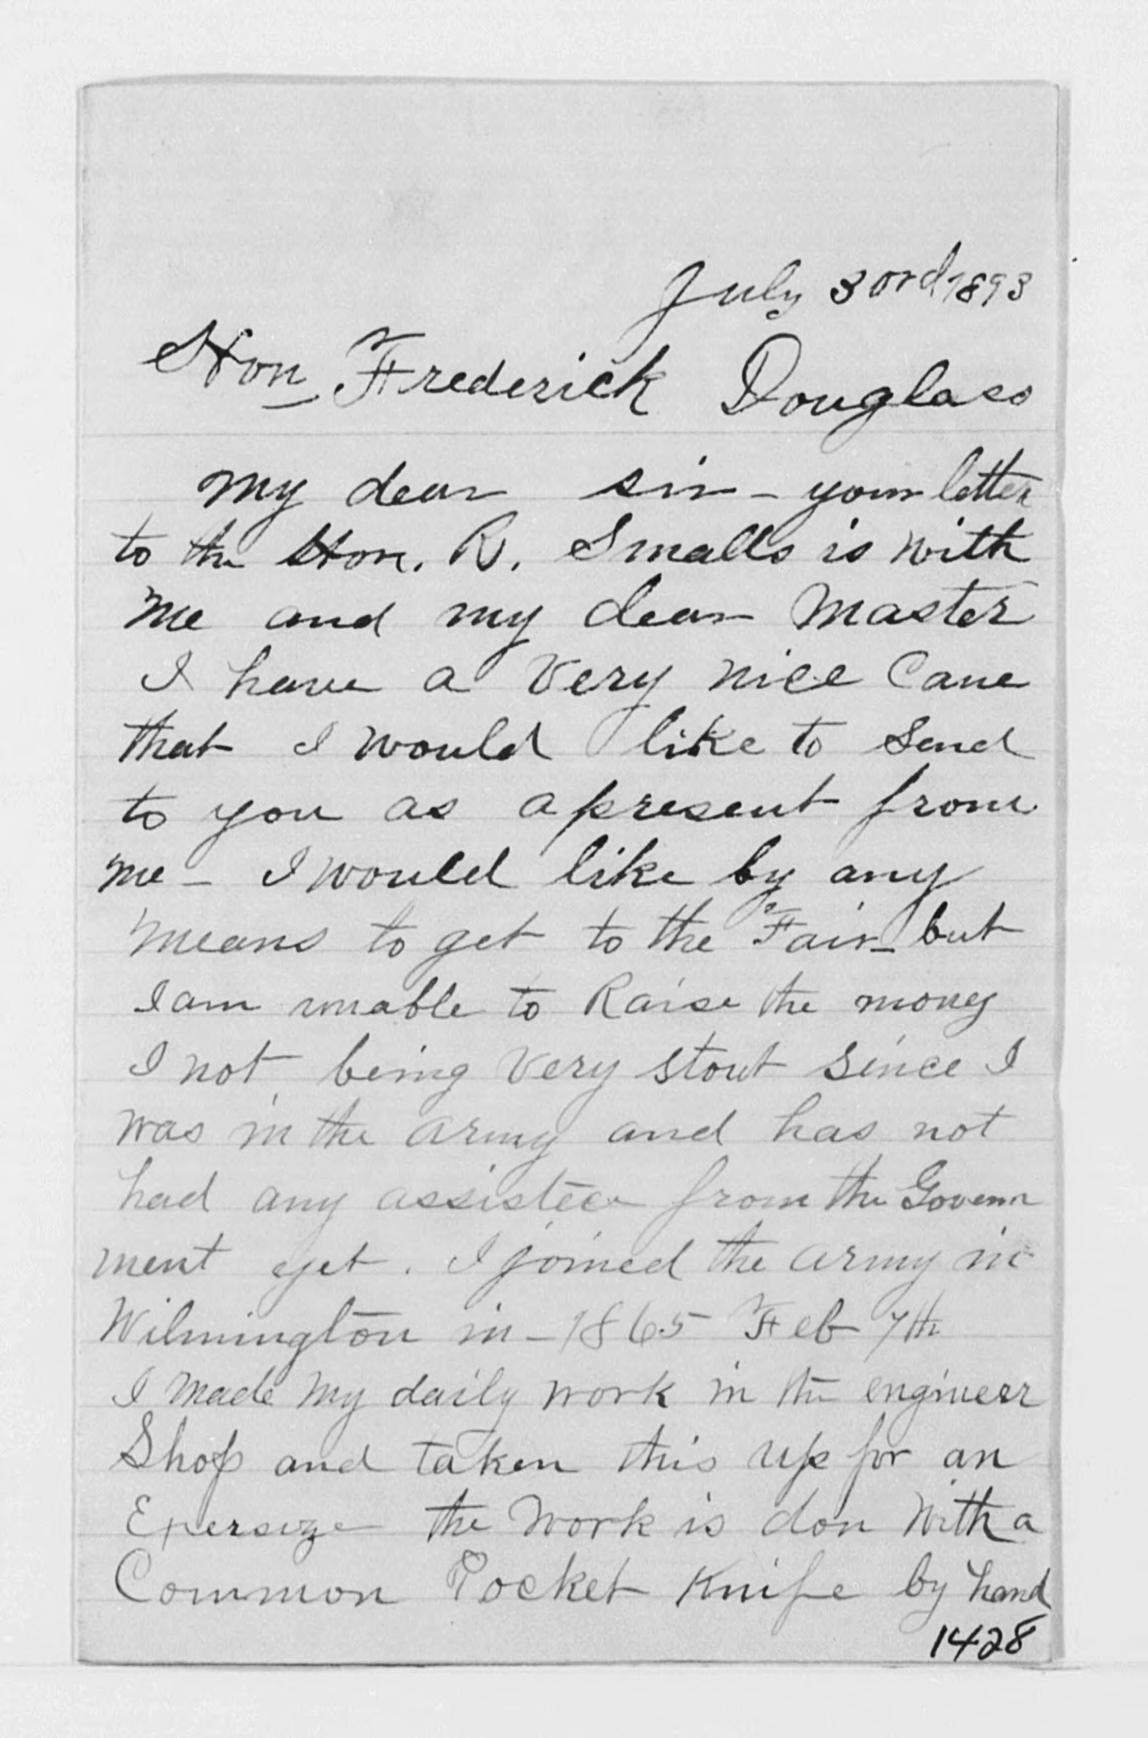 July 3ord 1893
Hon Frederick Douglass
My dear sir - your letter
to the Hon. R. Smalls is with
me and my dear Master
I have a very nice Cane
that I would like to send
to you as a present from
me - I would like by any
means to get to the Fair - but
I am unable to Raise the money
I not being very stout since I
was in the army and has not
had any assistece from the Governn
ment yet. I joined the army in
Wilmington in - 1865 Feb 7th
I made my daily work in the engineer
Shop and taken this up for an
Exersize the Work is don With a
Common Pocket Knife by hand
1428